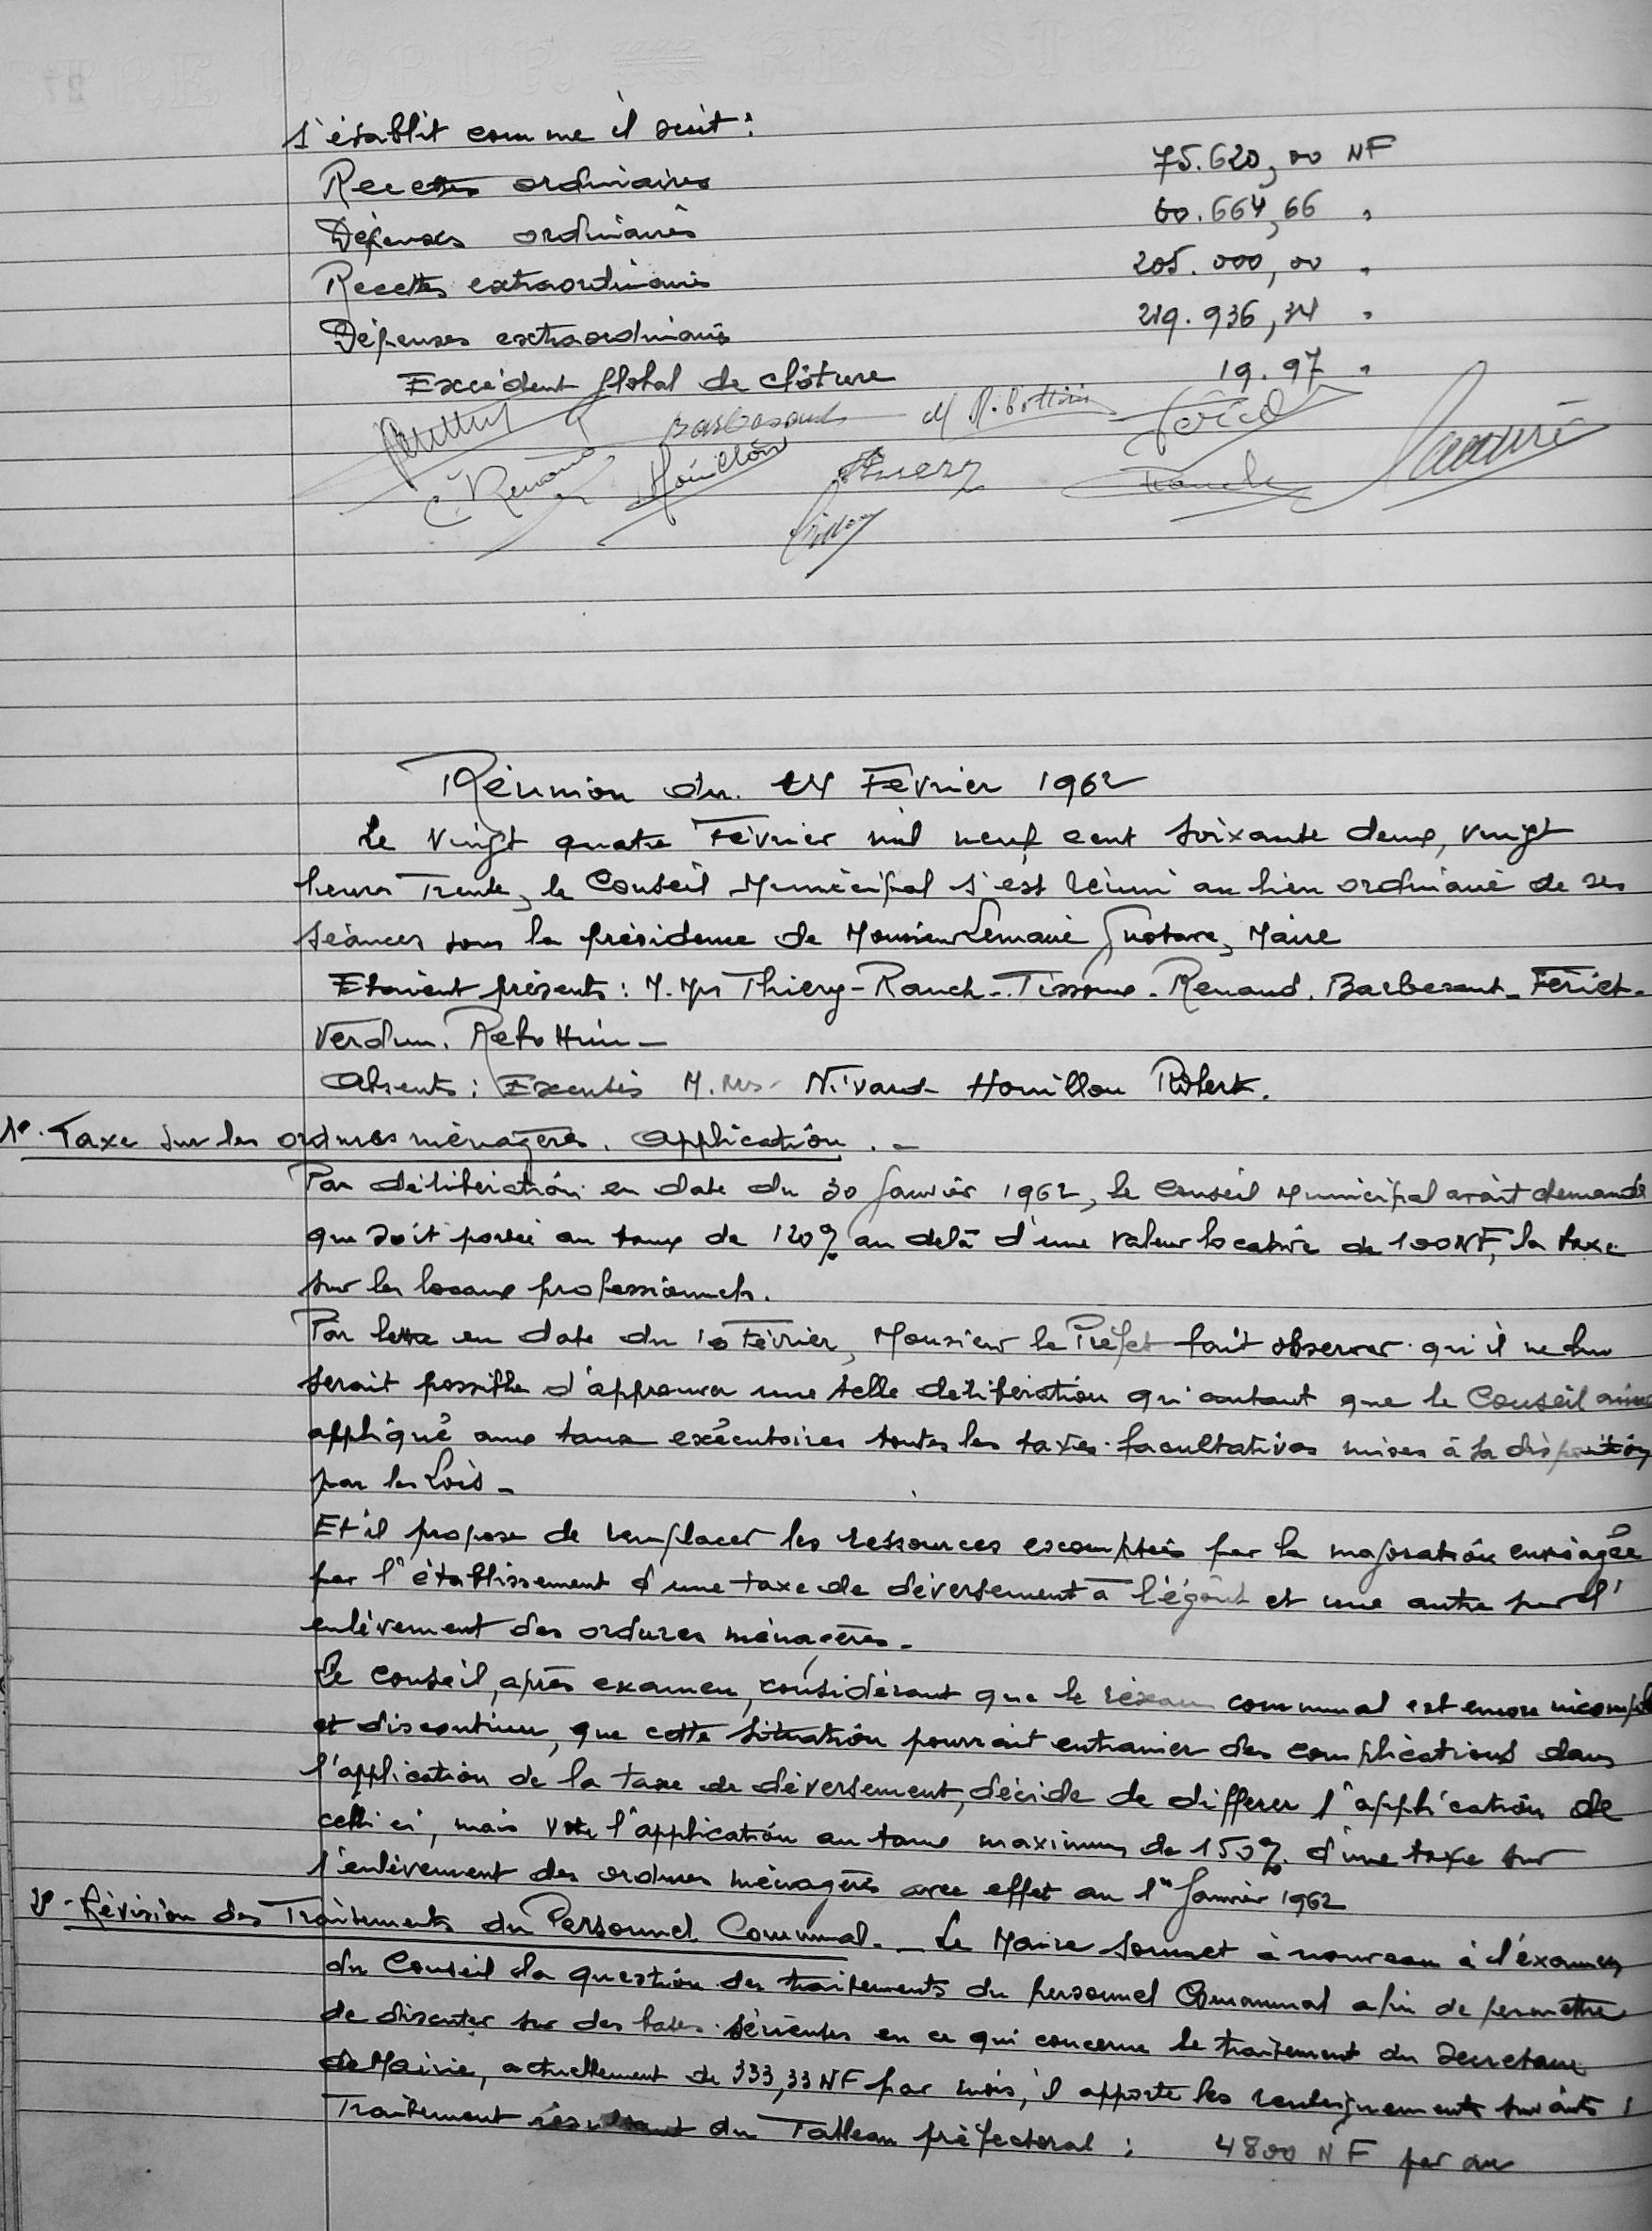 s'établit comme il suit :
Recettes ordinaires 75.620,00 NF
Dépenses ordinaires 60.664,66 "
Recettes extraordinaires 205.000,00 "
Dépenses extraordinaires 219.936,34 "
Excédent global de clôture 19.97 "
Barbesant M Rebottini Fériet
C. Renaud Houillon Thiery Rauch Lemaire
Réunion du 24 Février 1962
Le vingt quatre Février mil neuf cent soixante deux, vingt
heures Trente, le Conseil Municipal s'est réuni au lieu ordinaire de ses
séances sous la présidence de Monsieur Lemaire Gustave, Maire
Etaient présents : M.Mrs Thiery - Rauch - Tissoux - Renaud. Barbesant - Fériet -
Verdun. Rebottini -
Absents : Excusés M.Mrs - Nivard - Houillon Robert.
1°. Taxe sur les ordures ménagères. Application. -
Par délibération en date du 30 Janvier 1962, le Conseil Municipal avait demandé
que soit portée au taux de 120% au delà d'une valeur locative de 100 NF, la taxe
sur les locaux professionnels.
Par lettre en date du 10 Février, Monsieur le Préfet fait observer qu'il ne lui
serait possible d'approuver une telle délibération qu'autant que le Conseil
appliqué aux taux exécutoires toutes les taxes facultatives mises à sa disposition
par les Lois -
Et il propose de remplacer les ressources escomptées par la majoration envisagée
par l'établissement d'une taxe de déversement à l'égoût et une autre sur l'
enlèvement des ordures ménagères -
Le Conseil, après examen, considérant que le réseau communal est encore incomplet
et discontinu, que cette situation pourrait entrainer des complications dans
l'application de la taxe de déversement, décide de différer l'application de
celle ci, mais vote l'application au taux maximum de 150% d'une taxe sur
l'enlèvement des ordures ménagères avec effet au 1er Janvier 1962
2° - Révision des Traitements du Personnel Communal. - Le Maire soumet à nouveau à l'examen
du Conseil la question des traitements du personnel Communal afin de permettre
de discuter sur des bases sérieuses en ce qui concerne le traitement du Secrétaire
de Mairie, actuellement de 333,33 NF par mois, il apporte les renseignements suivants :
Traitement résultant du Tableau préfectoral : 4800 NF par an